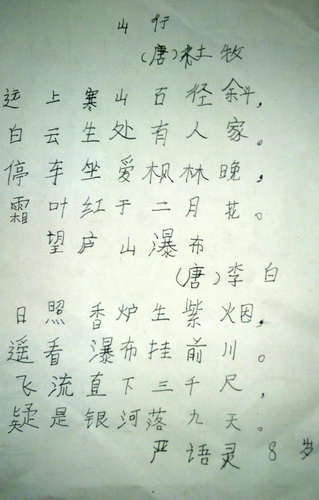 山行
(唐)杜牧
远上寒山百径斜,
白云生处有人家。
停车坐爱枫林晚,
霜叶红于二月花。
望庐山瀑布
(唐)李白
日照香炉生紫烟,
遥看瀑布挂前川。
飞流直下三千尺,
疑是银河落九天。
严语灵8岁